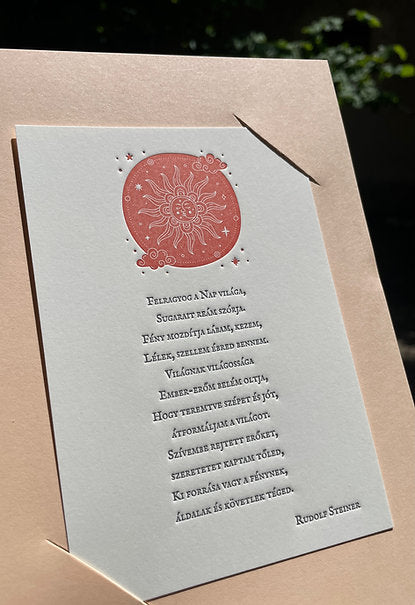 Felragyog a Nap világa,
Sugarait reám szórja.
Fény mozdítja lábam, kezem,
Lélek, szellem ébred bennem.
Világnak világossága
Ember-erőm belém oltja,
Hogy teremtve szépet és jót,
átformáljam a világot.
Szívembe rejtett erőket,
szeretetet kaptam tőled,
Ki forrása vagy a fénynek,
áldalak és követlek téged.
Rudolf Steiner